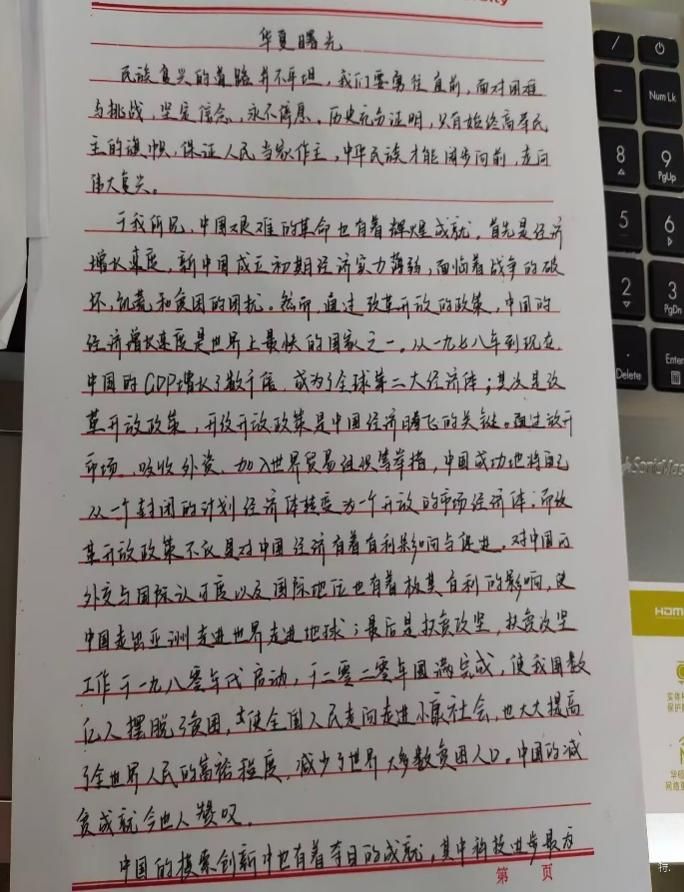 华夏曙光
民族复兴的道路并不平坦，我们要勇往直前，面对困难
与挑战，坚定信念，永不停息。历史充分证明，只有始终高举民
主的旗帜，保证人民当家作主，中华民族才能阔步向前，走向
伟大复兴。
于我所见，中国艰难的革命也有着辉煌成就。首先是经济
增长速度，新中国成立初期经济实力薄弱，面临着战争的破
坏，饥荒和贫困的困扰。然而，通过改革开放的政策，中国的
经济增长速度是世界上最快的国家之一。从一九七八年到现在，
中国的GDP增长了数千倍，成为了全球第二大经济体；其次是改
革开放政策，开放开放政策是中国经济腾飞的关键。通过放开
市场、吸收外资、加入世界贸易组织等举措，中国成功地将自己
从一个封闭的计划经济体转变为一个开放的市场经济体。而改
革开放政策不仅是对中国经济有着有利影响与促进，对中国的
外交与国际认可度以及国际地位也有着极其有利的影响，使
中国走出亚洲走进世界走进地球；最后是扶贫攻坚，扶贫攻坚
工作于一九八零年代启动，于二零二零年圆满完成，使我国数
亿人摆脱了贫困，使全国人民走向走进小康社会，也大大提高
了全世界人民的富裕程度，减少了世界大多数贫困人口。中国的减
贫成就令世人赞叹。
中国的探索创新中也有着夺目的成就，其中科技进步最为
第 页
/
Num Lk
8
9
PgUp
5
6
2
3
PgDn
Delete
Enter
HDMI